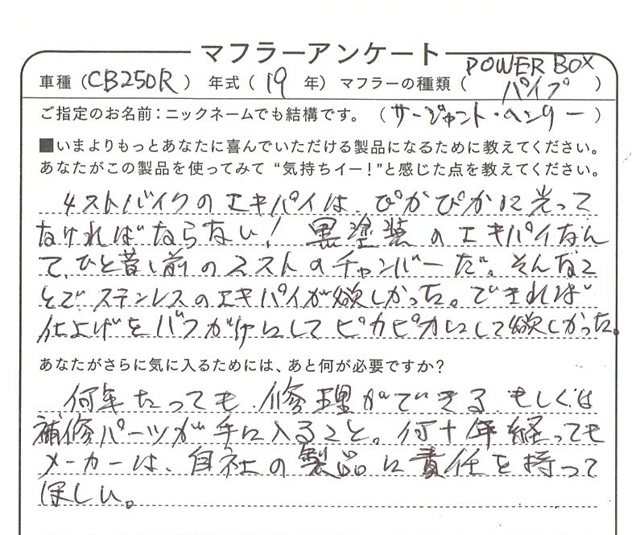 マフラーアンケート
車種（CB250R） 年式（19 年）マフラーの種類（POWER BOX パイプ）
ご指定のお名前：ニックネームでも結構です。（サージャント・ヘンリー）
■いまよりもっとあなたに喜んでいただける製品になるために教えてください。
あなたがこの製品を使ってみて “気持ちイー！”と感じた点を教えてください。
4ストバイクのエキパイは、ぴかぴかに光って
なければならない！ 黒塗装のエキパイなん
て、ひと昔し前の2ストのチャンバーだ。そんなこ
とで、ステンレスのエキパイが欲しかった。できれば
仕上げをバフがけにしてピカピカにして欲しかった。
あなたがさらに気に入るためには、あと何が必要ですか？
何年たっても修理ができる、もしくは
補修パーツが手に入ること。何十年経っても
メーカーは、自社の製品に責任を持って
ほしい。